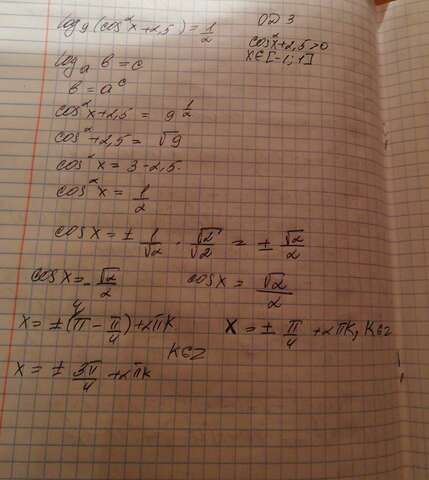 log₉(cos²x+2,5)=1/2
ОДЗ
cos²x+2,5>0
x∈[-1;1]
logₐ b=c
b=aᶜ
cos²x+2,5=9^(1/2)
cos²+2,5=√9
cos²x=3-2,5
cos²x=1/2
cosx=±1/√2·√2/√2=±√2/2
cosx=-√2/2
cosx=√2/2
x=±(π-π/4)+2πk
k∈z
x=±π/4+2πk, k∈z
x=±3π/4+2πk